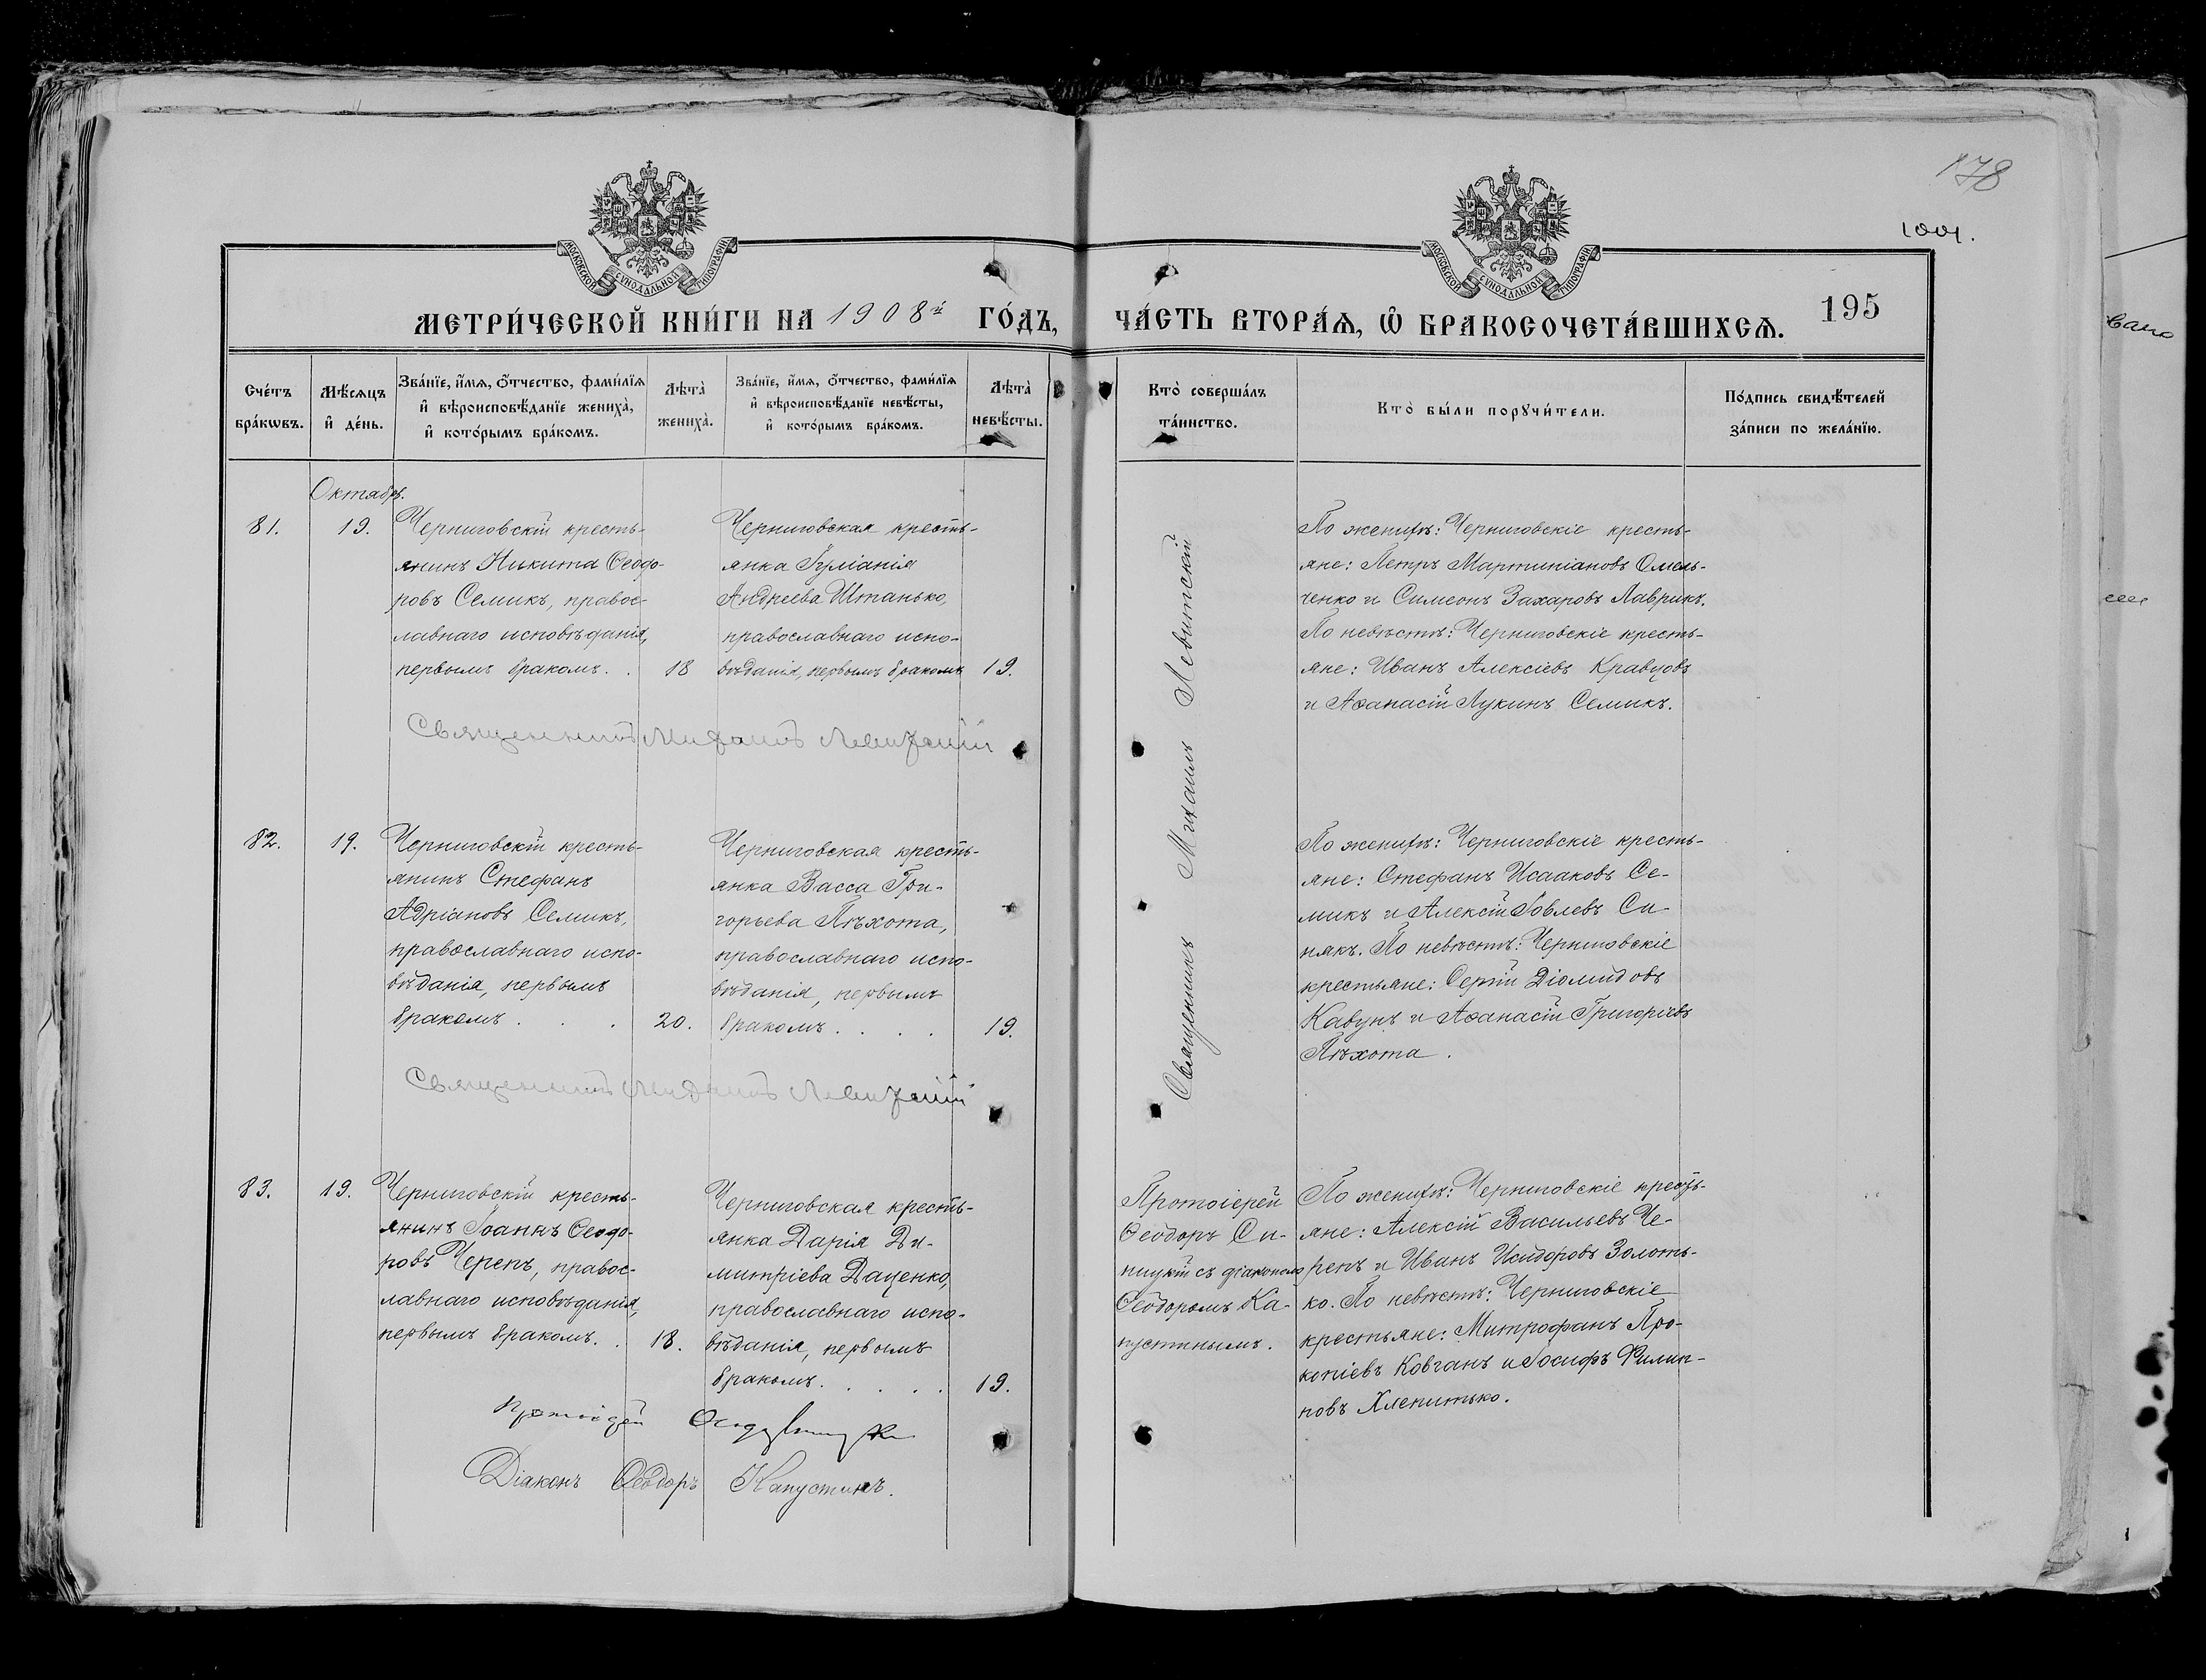 178
1001.
МОСКОВСКОЙ СѴНОДАЛЬНОЙ ТИПОГРАФІИ
МОСКОВСКОЙ СѴНОДАЛЬНОЙ ТИПОГРАФІИ
МЕТРИ́ЧЕСКОЙ КНИ́ГИ НА 1908й ГО́ДЪ,
ЧА́СТЬ ВТОРА́Ѧ, Ѽ БРАКОСОЧЕТА́ВШИХСѦ.
195
Сче́тъ
бра́кѡвъ.
Мѣ́сѧцъ
и҆ де́нь.
Зва́нїе, и҆́мѧ, ѻ҆́тчество, фами́лїѧ
и҆ вѣроисповѣ́данїе жениха̀,
и҆ кото́рымъ бра́комъ.
Лѣта̀
жениха̀.
Зва́нїе, и҆́мѧ, ѻ҆́тчество, фами́лїѧ
и҆ вѣроисповѣ́данїе невѣ́сты,
и҆ кото́рымъ бра́комъ.
Лѣта̀
невѣ́сты.
Кто̀ соверша́лъ
та́инство.
Кто̀ бы́ли порꙋчи́тели.
По́дпись свидѣ́телей
за́писи по жела́нїю.
Октябрь.
81.
19.
Черниговскій кресть-
янинъ Никита Ѳеодо-
ровъ Семикъ, правос-
лавнаго исповѣданія,
первымъ бракомъ. .
18
Черниговская кресть-
янка Іуліанія
Андреева Штанько,
православнаго испо-
вѣданія, первымъ бракомъ
19.
Священникъ Михаилъ Левитскій
По женихѣ: Черниговскіе кресть-
яне: Петръ Мартиніановъ Омель-
ченко и Симеонъ Захаровъ Лаврикъ.
По невѣстѣ: Черниговскіе кресть-
яне: Иванъ Алексіевъ Кравцовъ
и Аѳанасій Лукинъ Семикъ.
Священникъ Михаилъ Левитскій
82.
19.
Черниговскій кресть-
янинъ Стефанъ
Адріановъ Семикъ,
православнаго испо-
вѣданія, первымъ
бракомъ . . .
20.
Черниговская кресть-
янка Васса Гри-
горьева Пѣхота,
православнаго испо-
вѣданія, первымъ
бракомъ . . . .
19.
По женихѣ: Черниговскіе кресть-
яне: Стефанъ Исааковъ Се-
микъ и Алексій Іовлевъ Си-
някъ. По невѣстѣ: Черниговскіе
крестьяне: Сергій Діомидовъ
Кавунъ и Аѳанасій Григоріевъ
Пѣхота .
Священникъ Михаилъ Левитскій
83.
19.
Черниговскій кресть-
янинъ Іоаннъ Ѳеодо-
ровъ Черепъ, правос-
лавнаго исповѣданія,
первымъ бракомъ. .
18.
Черниговская кресть-
янка Дарія Ди-
митріева Даценко,
православнаго испо-
вѣданія, первымъ
бракомъ. . . . .
19.
Протоіерей
Ѳеодоръ Си-
ницкій съ діакономъ
Ѳеодоромъ Ка-
пустинымъ.
По женихѣ: Черниговскіе кресть-
яне: Алексій Васильевъ Че-
репъ и Иванъ Исидоровъ Золоть-
ко. По невѣстѣ: Черниговскіе
крестьяне: Митрофанъ Про-
копіевъ Ковганъ и Іосифъ Филип-
повъ Хлепитько.
Протоіерей
Діаконъ Ѳеодоръ Капустинъ.